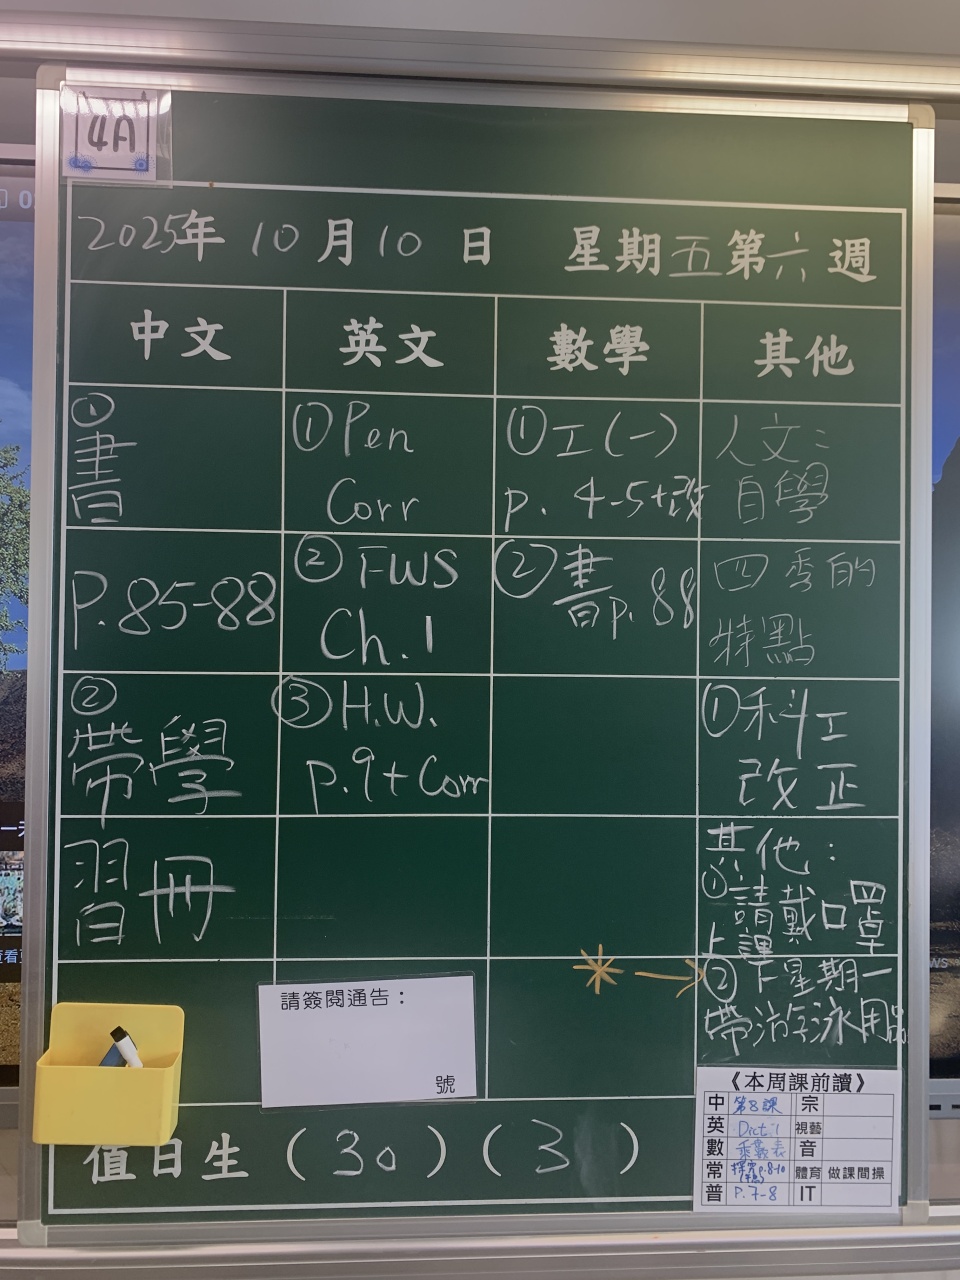 4A
2025年 10月10日 星期五第六週
中文
英文
數學
其他
①
書
P.85-88
②
帶學
習冊
① Pen
Corr
② FWS
Ch.1
③ H.W.
p.9+Corr
①工(一)
p. 4-5+改
②書p.88
人文:
自學
四季的
特點
①科工
改正
其他:
①請戴口罩
上課
②下星期一
帶游泳用品
請簽閱通告:
號
值日生 (30) (3 )
《本周課前讀》
中 第8課 宗
英 Dict.1 視藝
數 乘數表 音
常 p.8-10 體育 做課間操
普 P.7-8 IT